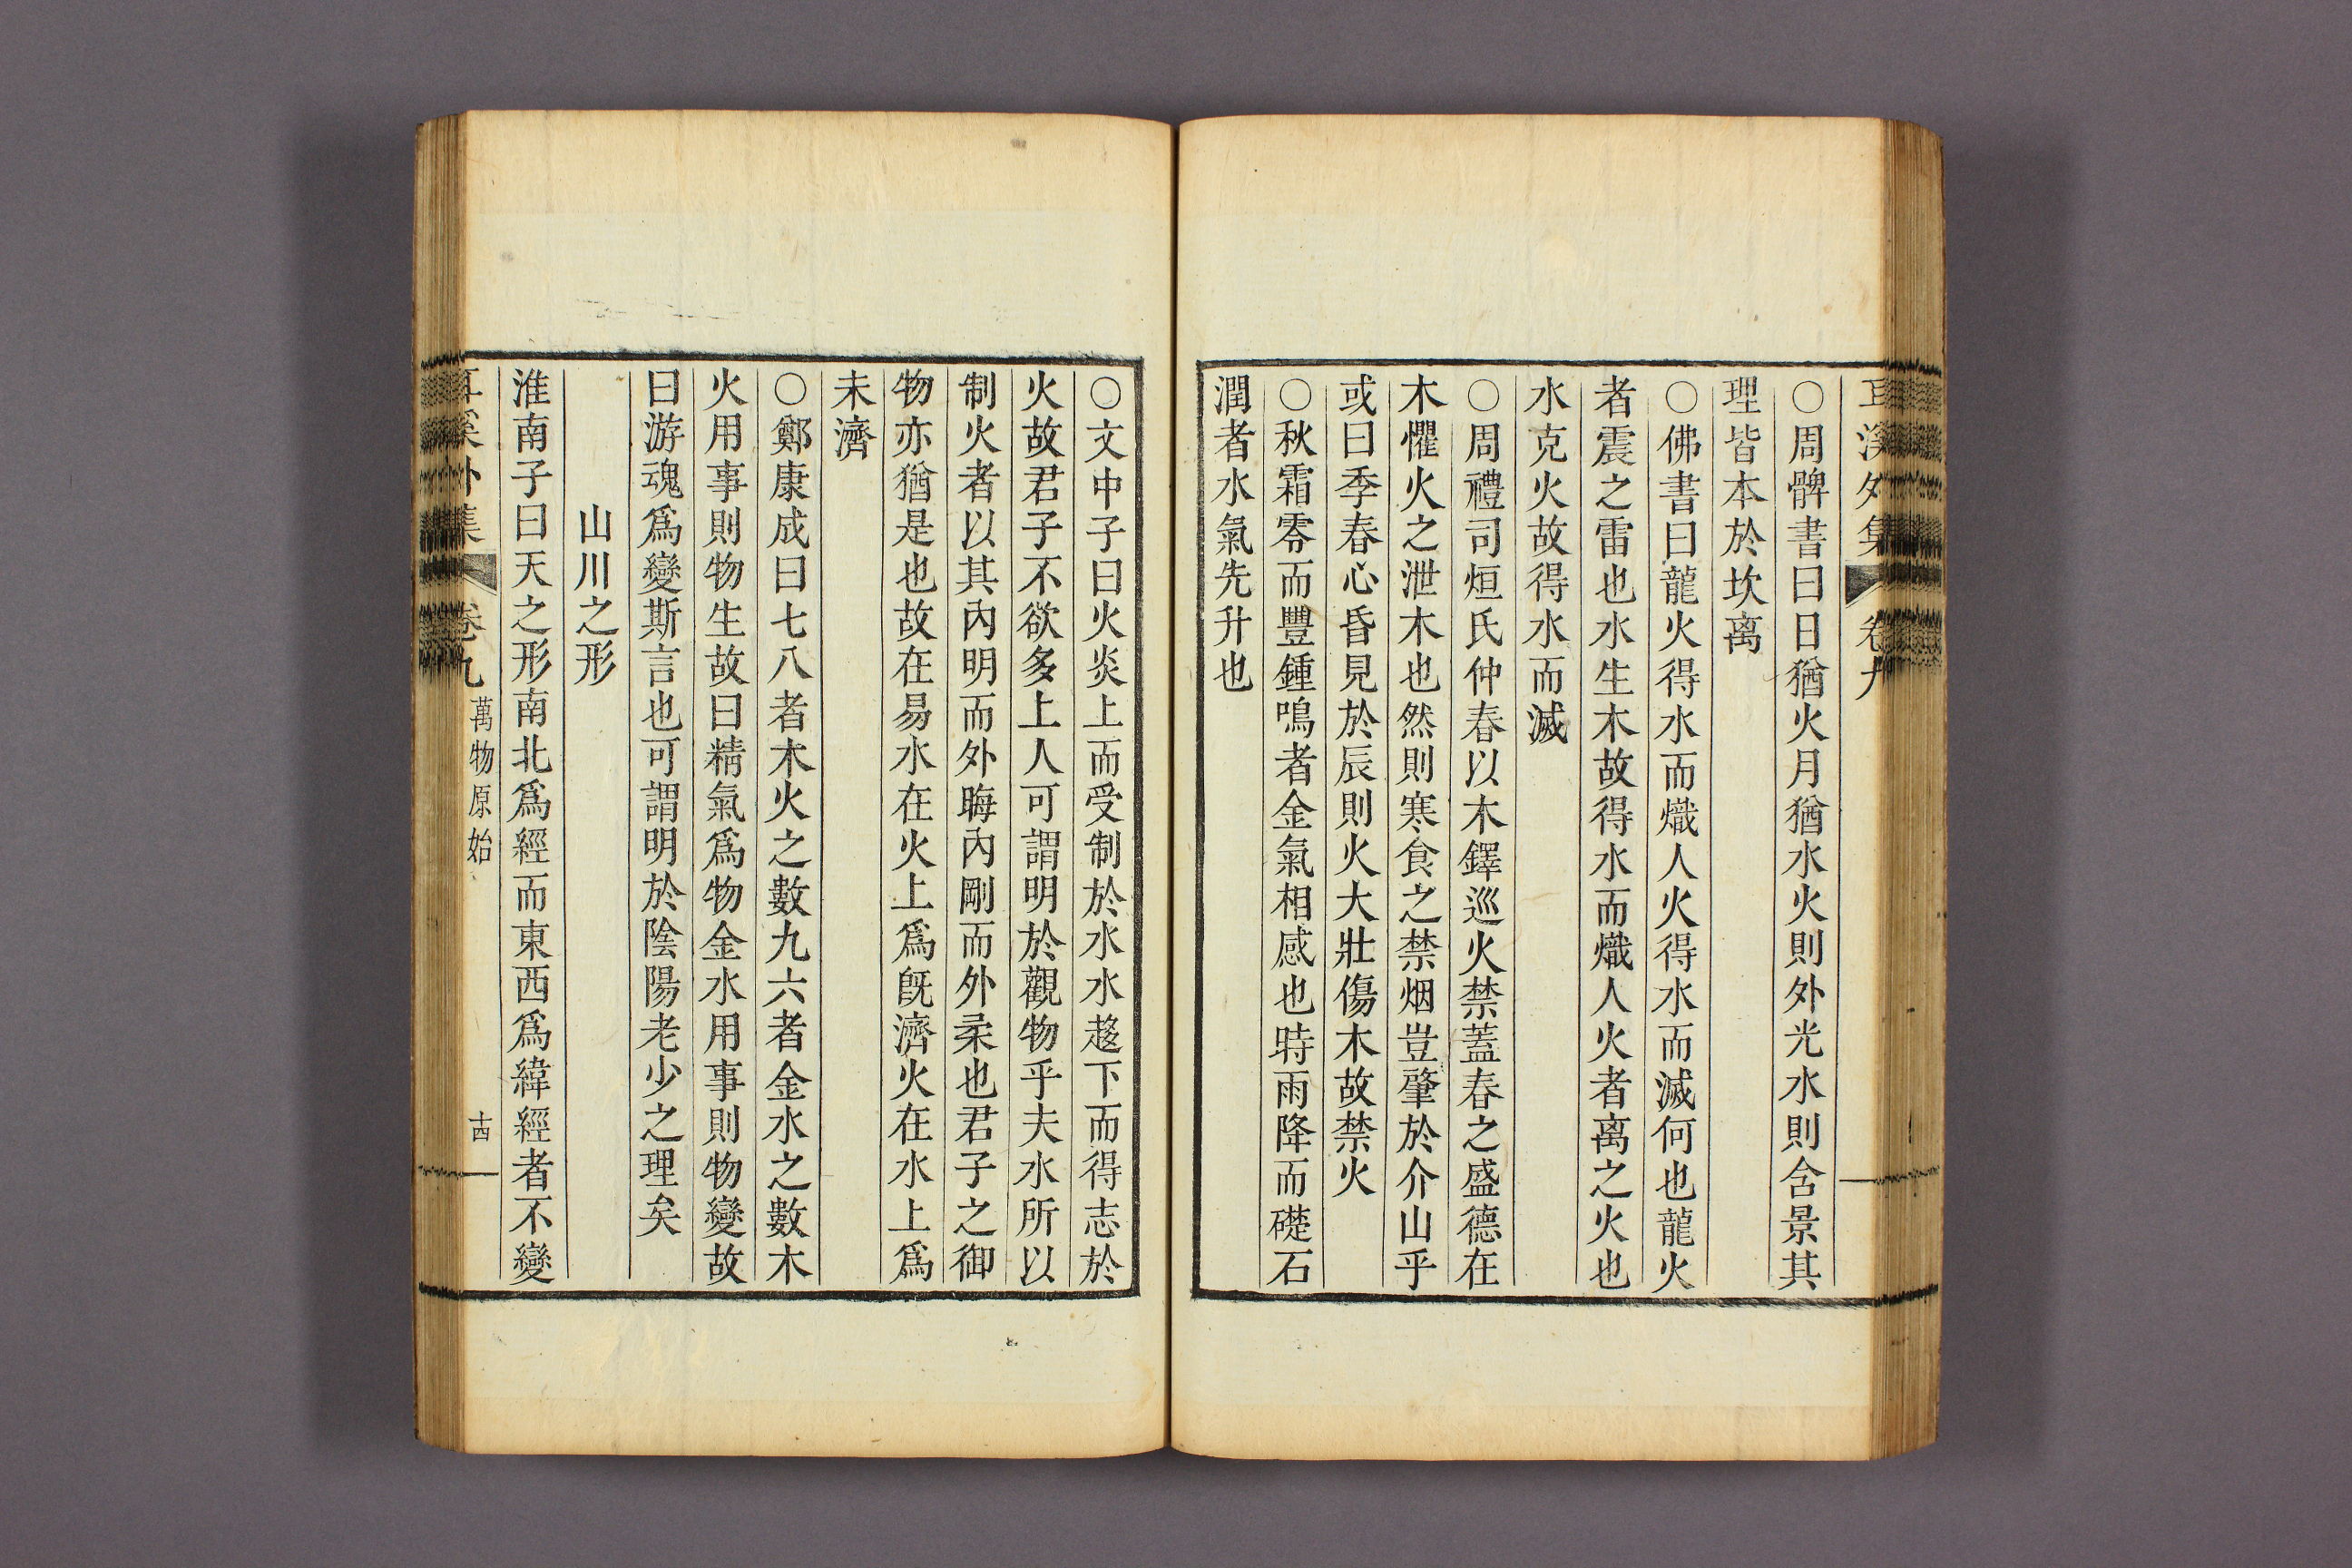 耳溪外集 卷九
○周髀書曰日猶火月猶水火則外光水則含景其
理皆本於坎离
○佛書曰龍火得水而熾人火得水而滅何也龍火
者震之雷也水生木故得水而熾人火者离之火也
水克火故得水而滅
○周禮司烜氏仲春以木鐸巡火禁蓋春之盛德在
木懼火之泄木也然則寒食之禁烟豈肇於介山乎
或曰季春心昏見於辰則火大壯傷木故禁火
○秋霜零而豐鍾鳴者金氣相感也時雨降而礎石
潤者水氣先升也
○文中子曰火炎上而受制於水水趍下而得志於
火故君子不欲多上人可謂明於觀物乎夫水所以
制火者以其內明而外晦內剛而外柔也君子之御
物亦猶是也故在易水在火上爲旣濟火在水上爲
未濟
○鄭康成曰七八者木火之數九六者金水之數木
火用事則物生故曰精氣爲物金水用事則物變故
曰游魂爲變斯言也可謂明於陰陽老少之理矣
山川之形
淮南子曰天之形南北爲經而東西爲緯經者不變
耳溪外集 卷九 萬物原始 十四